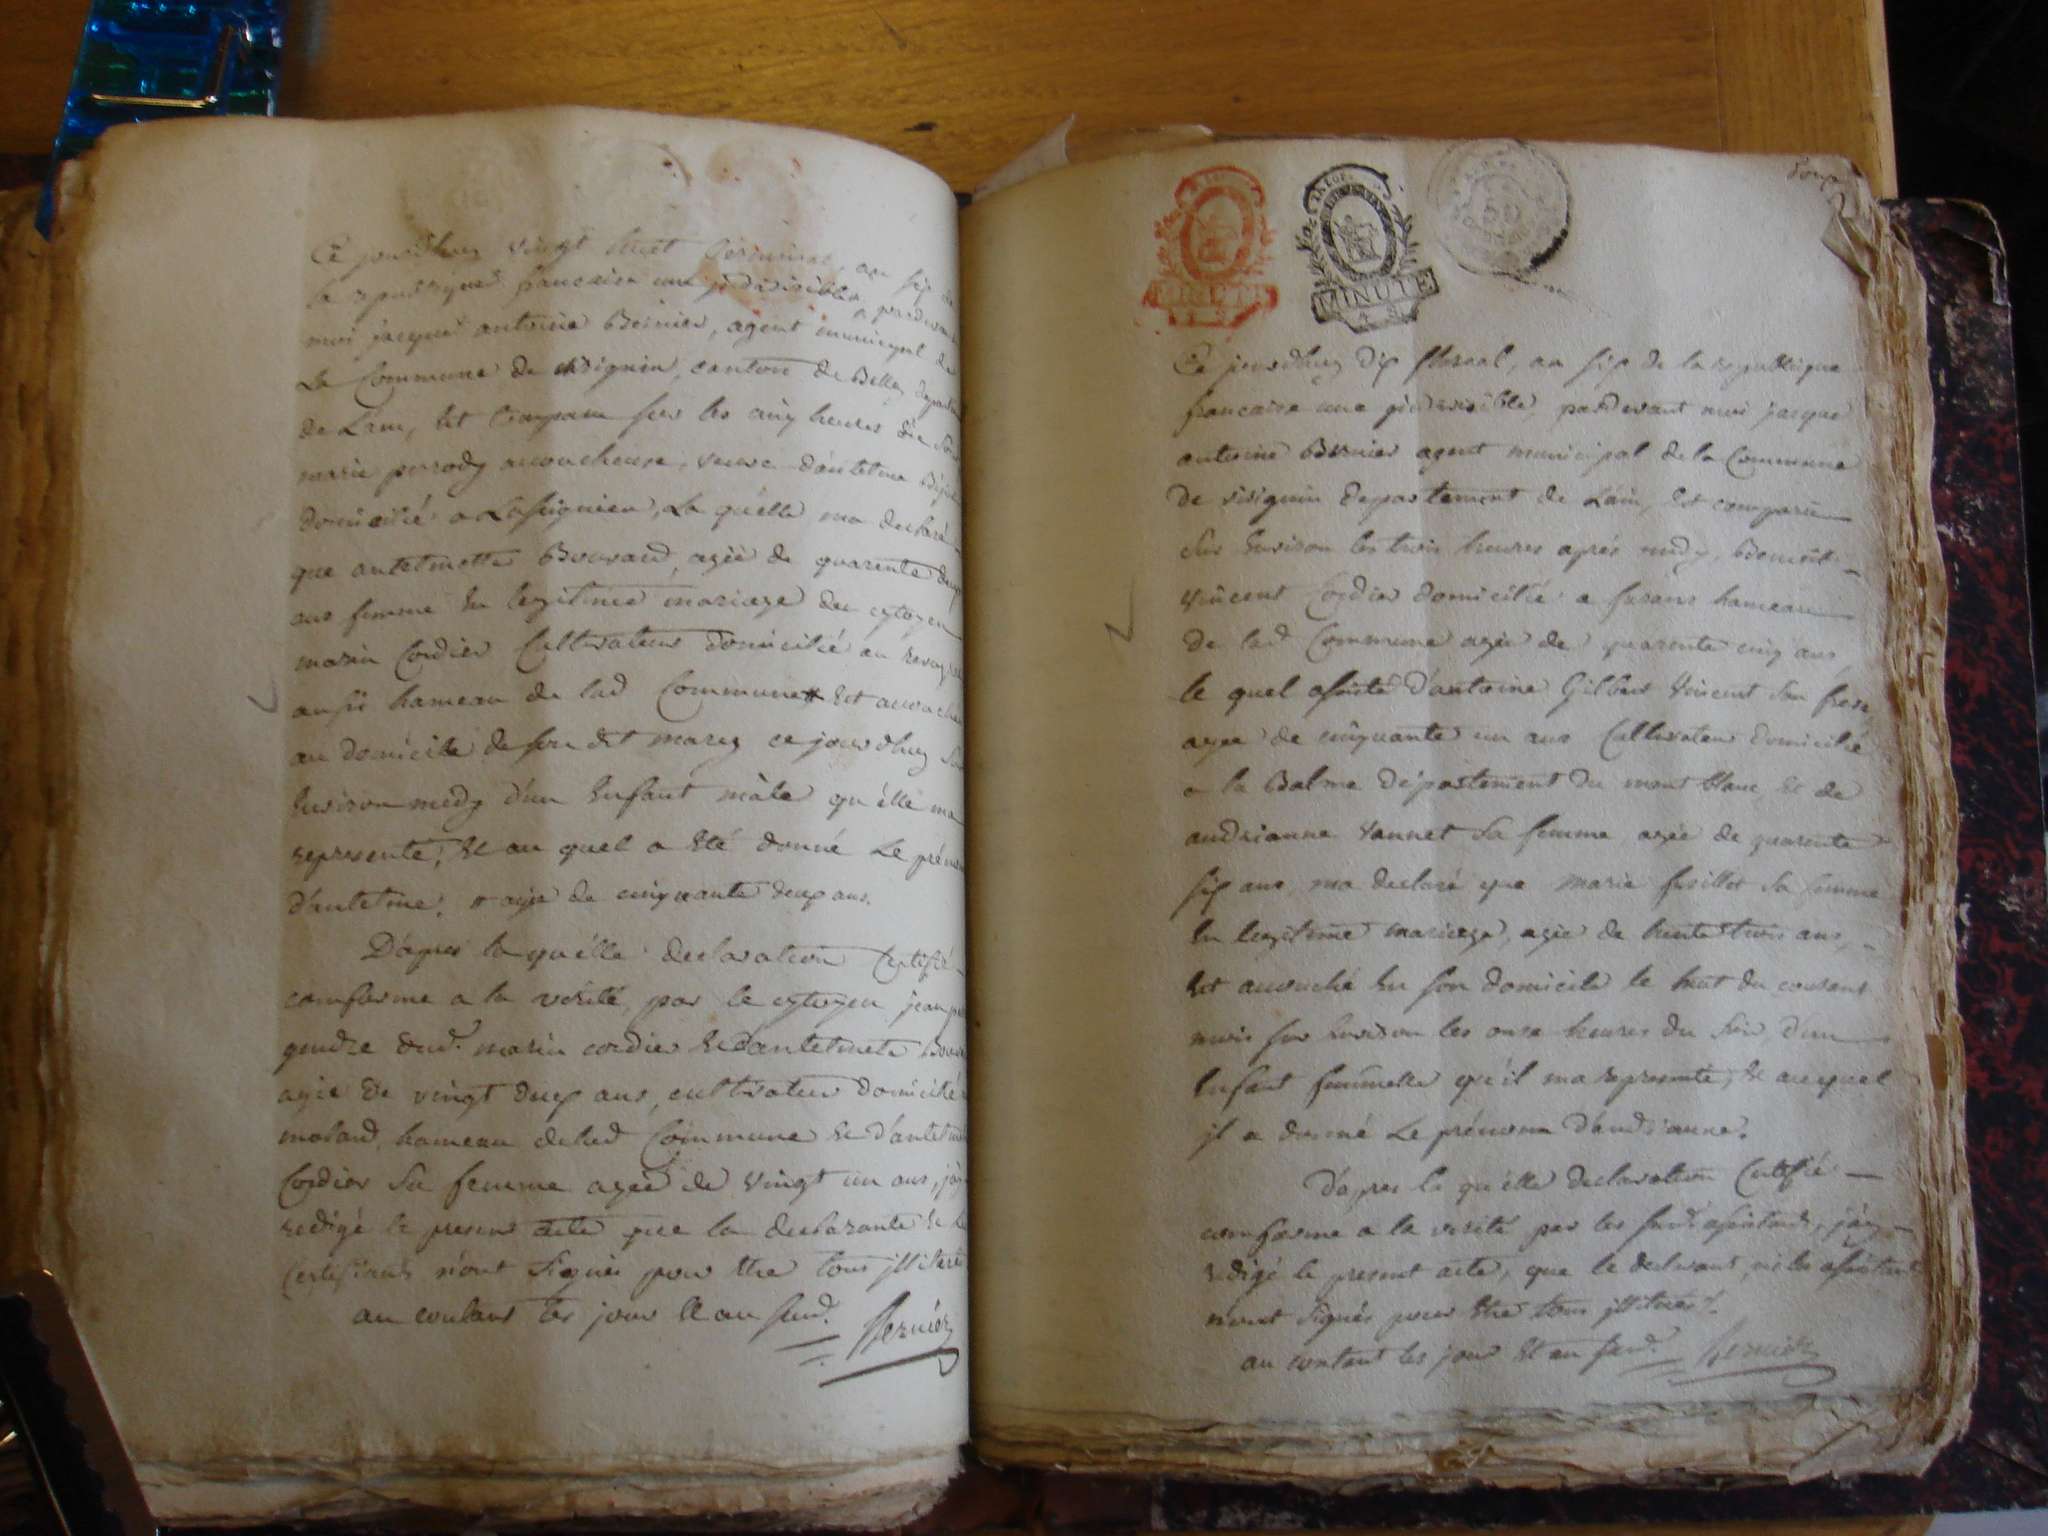 Ce jourdhuy vingt huit Germinal, an six de
la republique francaise une jndivisible, pardevant
moi jacque antoine Bernier, agent municipal de
La Commune de virignin, canton de Belley departement
de Lain, Est Comparu sur les cinq heures du soir
marie perrody accoucheuse, veuve dantelme
domicilié a Lassignieu, La quelle ma declaré
que antelmette Bouvard, agée de quarente deux
ans femme En legitime mariage du cytoyen
marin Cordier Cultivateur domicilié au
aussi hameau de lad Commune # Est accouchée
au domicile de son dit marey ce jourdhuy sur
Environ medy d'un Enfant mâle qu'élle ma
represente, Et au quel a Eté donné Le prénom
d'antelme. # agée de cinquante deux ans.
D'apres la qu'elle declaration Certifié
comforme a la verité par le cytoyen jean
gendre dud. marin cordier Et dantelmete
agée de vingt deux ans, cultivateur domicilié
hameau delad Commune Et d'antelmete
Cordier Sa femme agée de vingt un ans, j'ay
redigé le present acte que la declarante Et les
Certifiants n'ont Signés pour Etre tous jllitéré
au contant les jour Et an susd. Bernier
MINUTE
MINUTE
Ce jourdhuy dix floreal, an six de la republique
francaise une jndivisible, pardevant moi jacque
antoine Bernier agent municipal de la Commune
de virignin departement de Lain, Est comparu
sur Environ les trois heures aprés medy, Benoit
vincent Cordier domicilié a
hameau
de lad Commune agée de quarente cinq ans
le quel assisté d'antoine Gilbert vincent son frere
agée de cinquante un ans Cultivateur domicilié
a la Balme département du mont blanc, Et de
andrianne vannet Sa femme, agée de quarente
six ans, ma declaré que marie fusillet Sa femme
En legitime mariage, agée de trente trois ans,
Est accouché En son domicile le huit du courant
mois sur Environ les onze heures du Soir d'un
Enfant fummelle qu'il ma represente, Et auquel
jl a donné Le prénom d'andrianne.
D'apres la qu'élle declaration Certifié
comforme a la verité par les susd assistants, j'ay
redigé le present acte, que le declarant, ni les assistants
n'ont Signés pour Etre tous jllitérés.
au contant les jour Et an susd. Bernier